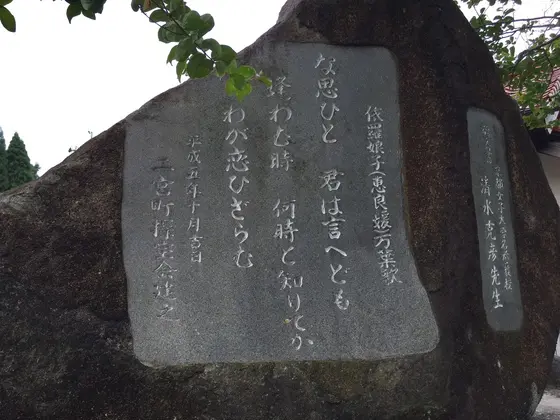 依羅娘子(恵良媛)万葉歌
な思ひと 君は言へども
逢わむ時 何時と知りてか
わが恋ひざらむ
平成五年十月吉日
会建之
女子大学名誉教授
清水克彦先生